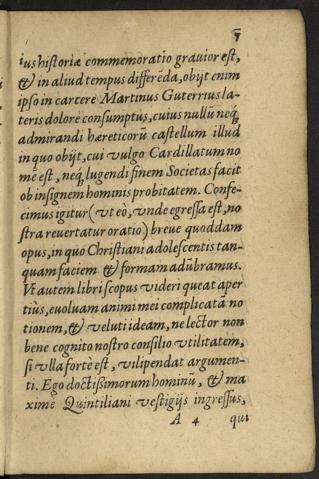 7
ius historiæ commemoratio grauior est,
& in aliud tempus differẽda, obijt enim
ipso in carcere Martinus Guterrius la-
teris dolore consumptus, cuius nullũ neq́;
admirandi hæreticorũ castellum illud
in quo obijt, cui vulgo Cardillatum no
mẽ est, neq́; lugendi finem Societas facit
ob insignem hominis probitatem. Confe-
cimus igitur (vt eò, vnde egressa est, no
stra reuertatur oratio) breue quoddam
opus, in quo Christiani adolescentis tan-
quam faciem & formam adũbramus.
Vt autem libri scopus videri queat aper
tiùs, euoluam animi mei complicatã no
tionem, & veluti ideam, ne lector non
bene cognito nostro consilio vtilitatem,
si vlla fortè est, vilipendat argumen-
ti. Ego doctissimorum hominũ, & ma
ximè Quintiliani vestigijs ingressus,
A 4 qui